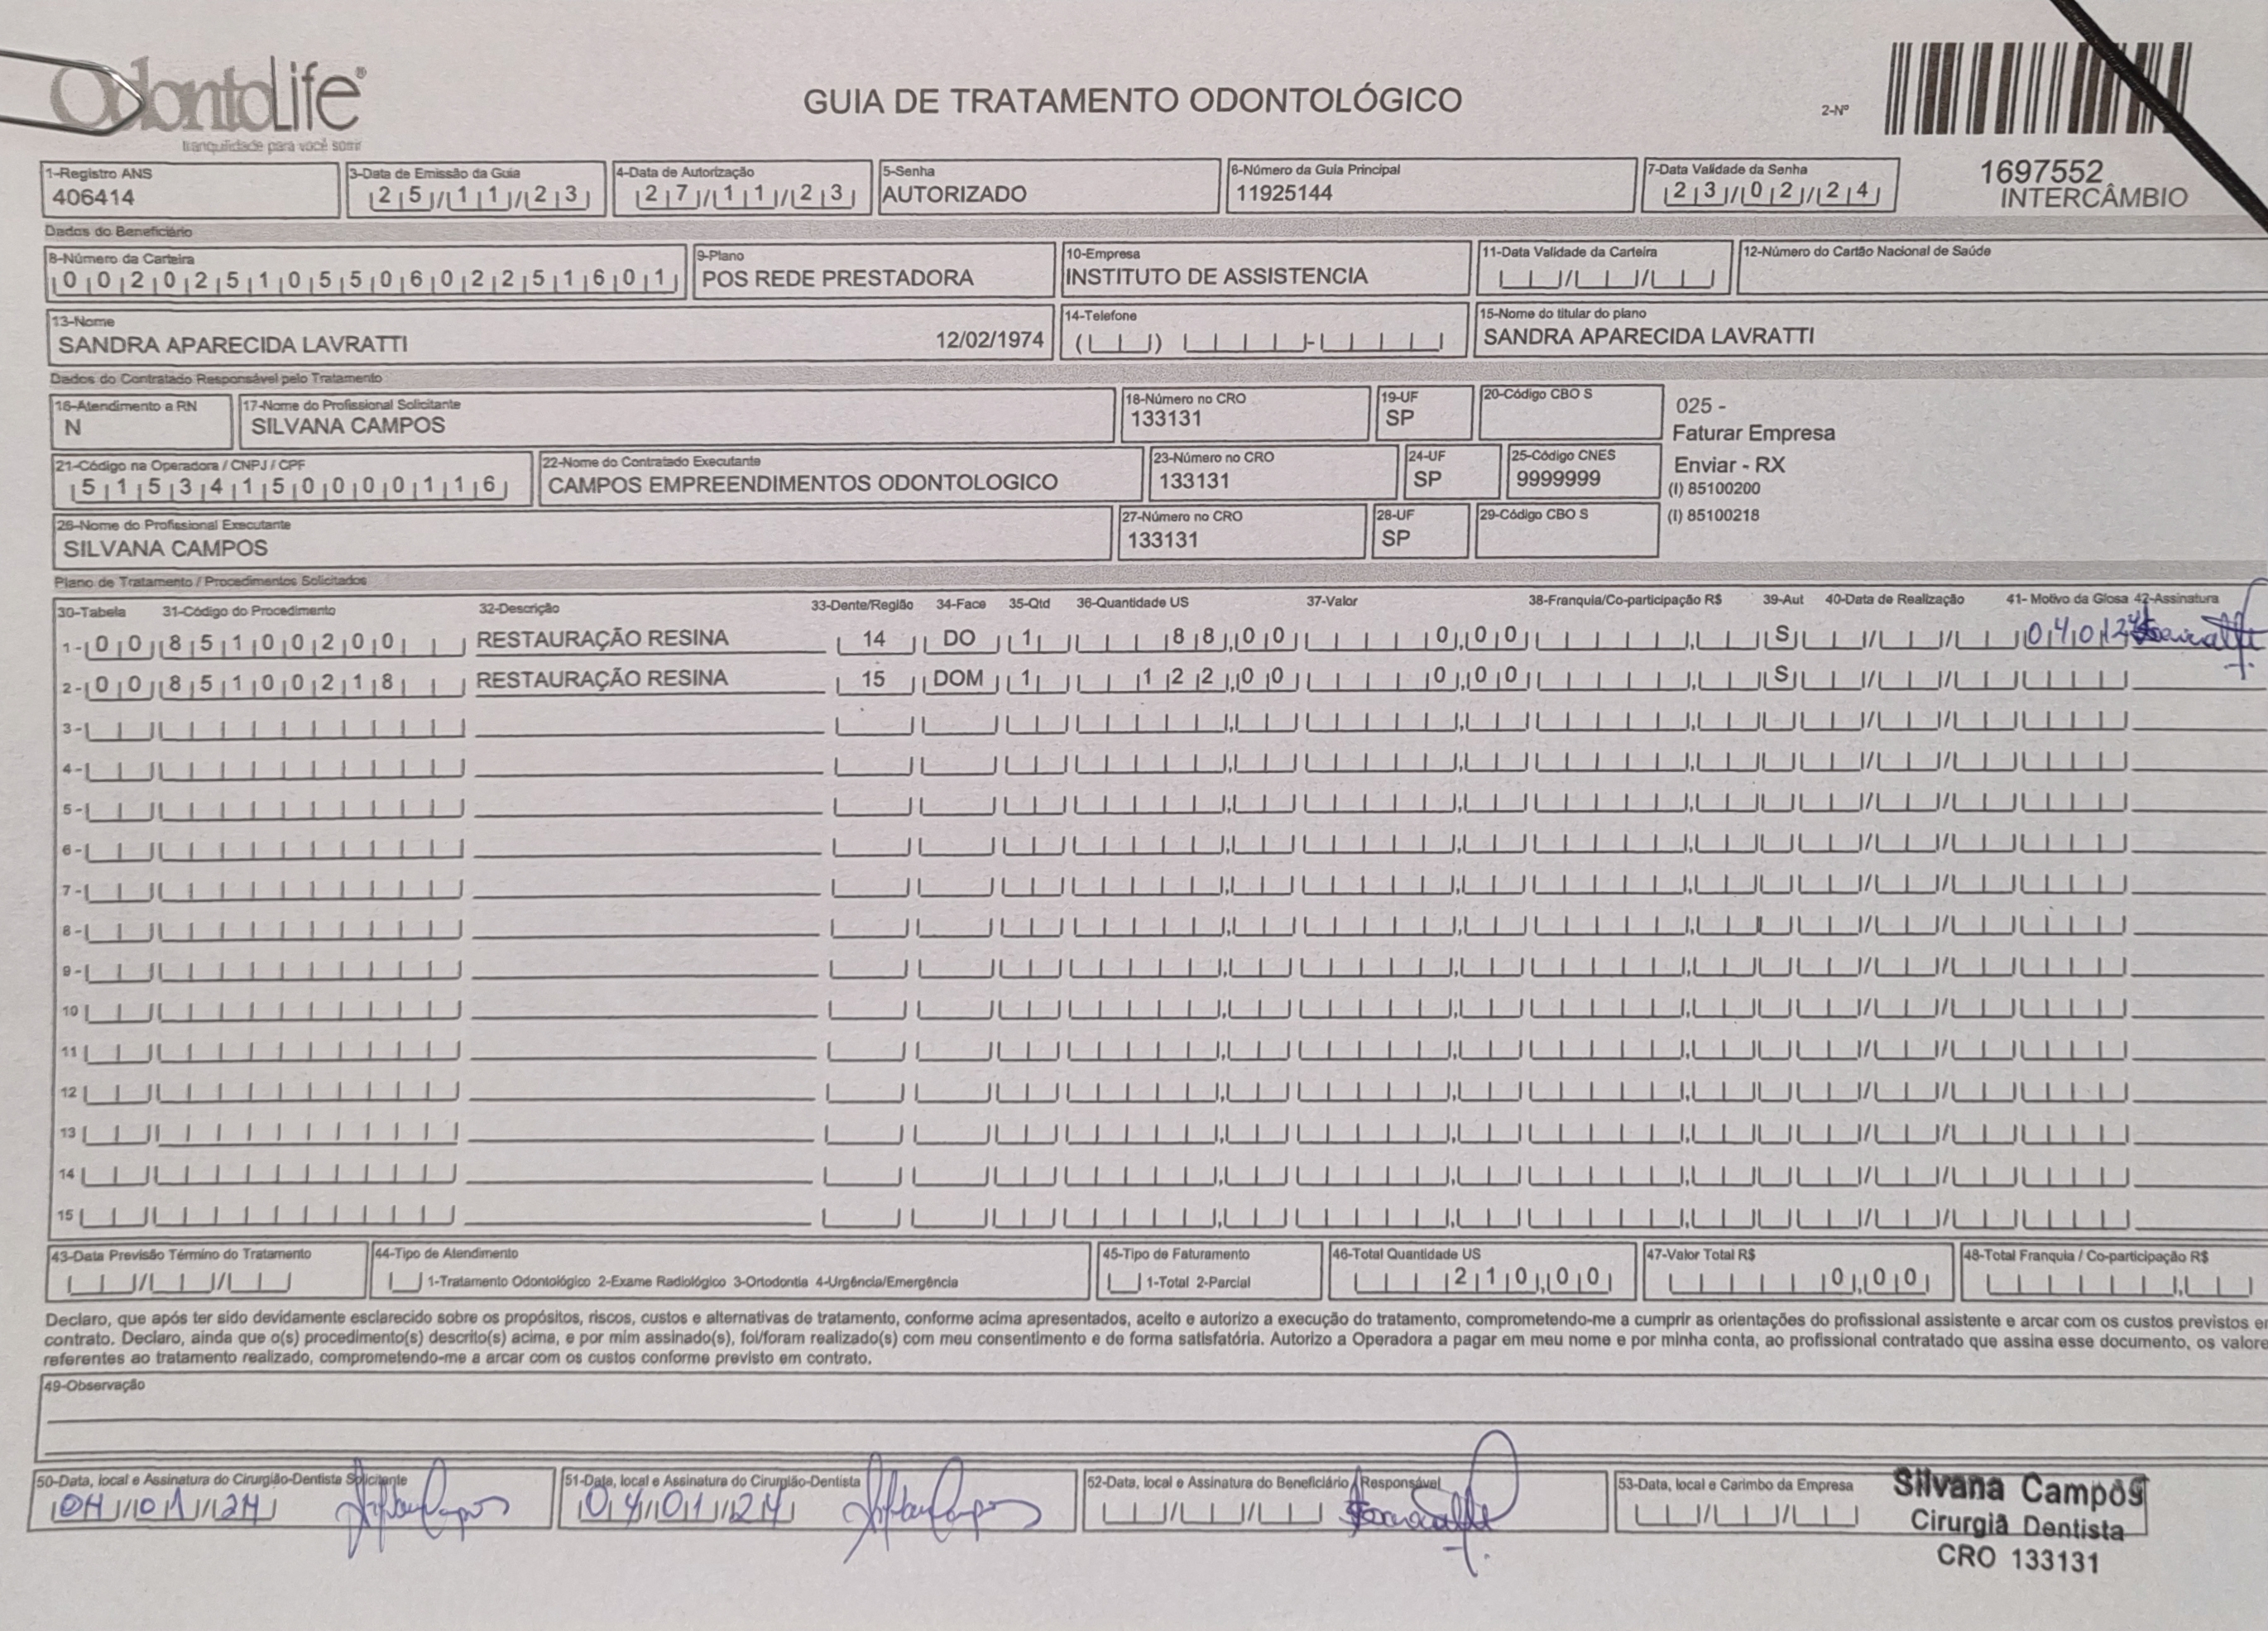 OdontoLife®
tranquilidade para você sorrir
GUIA DE TRATAMENTO ODONTOLÓGICO
2-Nº
1697552
INTERCÂMBIO
1-Registro ANS
406414
3-Data de Emissão da Guia
25/11/23
4-Data de Autorização
27/11/23
5-Senha
AUTORIZADO
6-Número da Guia Principal
11925144
7-Data Validade da Senha
23/02/24
Dados do Beneficiário
8-Número da Carteira
00202510550602251601
9-Plano
POS REDE PRESTADORA
10-Empresa
INSTITUTO DE ASSISTENCIA
11-Data Validade da Carteira
12-Número do Cartão Nacional de Saúde
13-Nome
SANDRA APARECIDA LAVRATTI 12/02/1974
14-Telefone
15-Nome do titular do plano
SANDRA APARECIDA LAVRATTI
Dados do Contratado Responsável pelo Tratamento
16-Atendimento a RN
N
17-Nome do Profissional Solicitante
SILVANA CAMPOS
18-Número no CRO
133131
19-UF
SP
20-Código CBO S
025 -
Faturar Empresa
Enviar - RX
(I) 85100200
(I) 85100218
21-Código na Operadora / CNPJ / CPF
51534150000116
22-Nome do Contratado Executante
CAMPOS EMPREENDIMENTOS ODONTOLOGICO
23-Número no CRO
133131
24-UF
SP
25-Código CNES
9999999
26-Nome do Profissional Executante
SILVANA CAMPOS
27-Número no CRO
133131
28-UF
SP
29-Código CBO S
Plano de Tratamento / Procedimentos Solicitados
30-Tabela 31-Código do Procedimento 32-Descrição 33-Dente/Região 34-Face 35-Qtd 36-Quantidade US 37-Valor 38-Franquia/Co-participação R$ 39-Aut 40-Data de Realização 41- Motivo da Glosa 42-Assinatura
1- 00 85100200 RESTAURAÇÃO RESINA 14 DO 1 88,00 0,00 S
2- 00 85100218 RESTAURAÇÃO RESINA 15 DOM 1 122,00 0,00 S
3-
4-
5-
6-
7-
8-
9-
10
11
12
13
14
15
43-Data Previsão Término do Tratamento
44-Tipo de Atendimento
1-Tratamento Odontológico 2-Exame Radiológico 3-Ortodontia 4-Urgência/Emergência
45-Tipo de Faturamento
1-Total 2-Parcial
46-Total Quantidade US
210,00
47-Valor Total R$
0,00
48-Total Franquia / Co-participação R$
Declaro, que após ter sido devidamente esclarecido sobre os propósitos, riscos, custos e alternativas de tratamento, conforme acima apresentados, aceito e autorizo a execução do tratamento, comprometendo-me a cumprir as orientações do profissional assistente e arcar com os custos previstos em
contrato. Declaro, ainda que o(s) procedimento(s) descrito(s) acima, e por mim assinado(s), foi/foram realizado(s) com meu consentimento e de forma satisfatória. Autorizo a Operadora a pagar em meu nome e por minha conta, ao profissional contratado que assina esse documento, os valore
referentes ao tratamento realizado, comprometendo-me a arcar com os custos conforme previsto em contrato.
49-Observação
50-Data, local e Assinatura do Cirurgião-Dentista Solicitante
04/01/24
51-Data, local e Assinatura do Cirurgião-Dentista
04/01/24
52-Data, local e Assinatura do Beneficiário / Responsável
53-Data, local e Carimbo da Empresa
Silvana Campos
Cirurgiã Dentista
CRO 133131